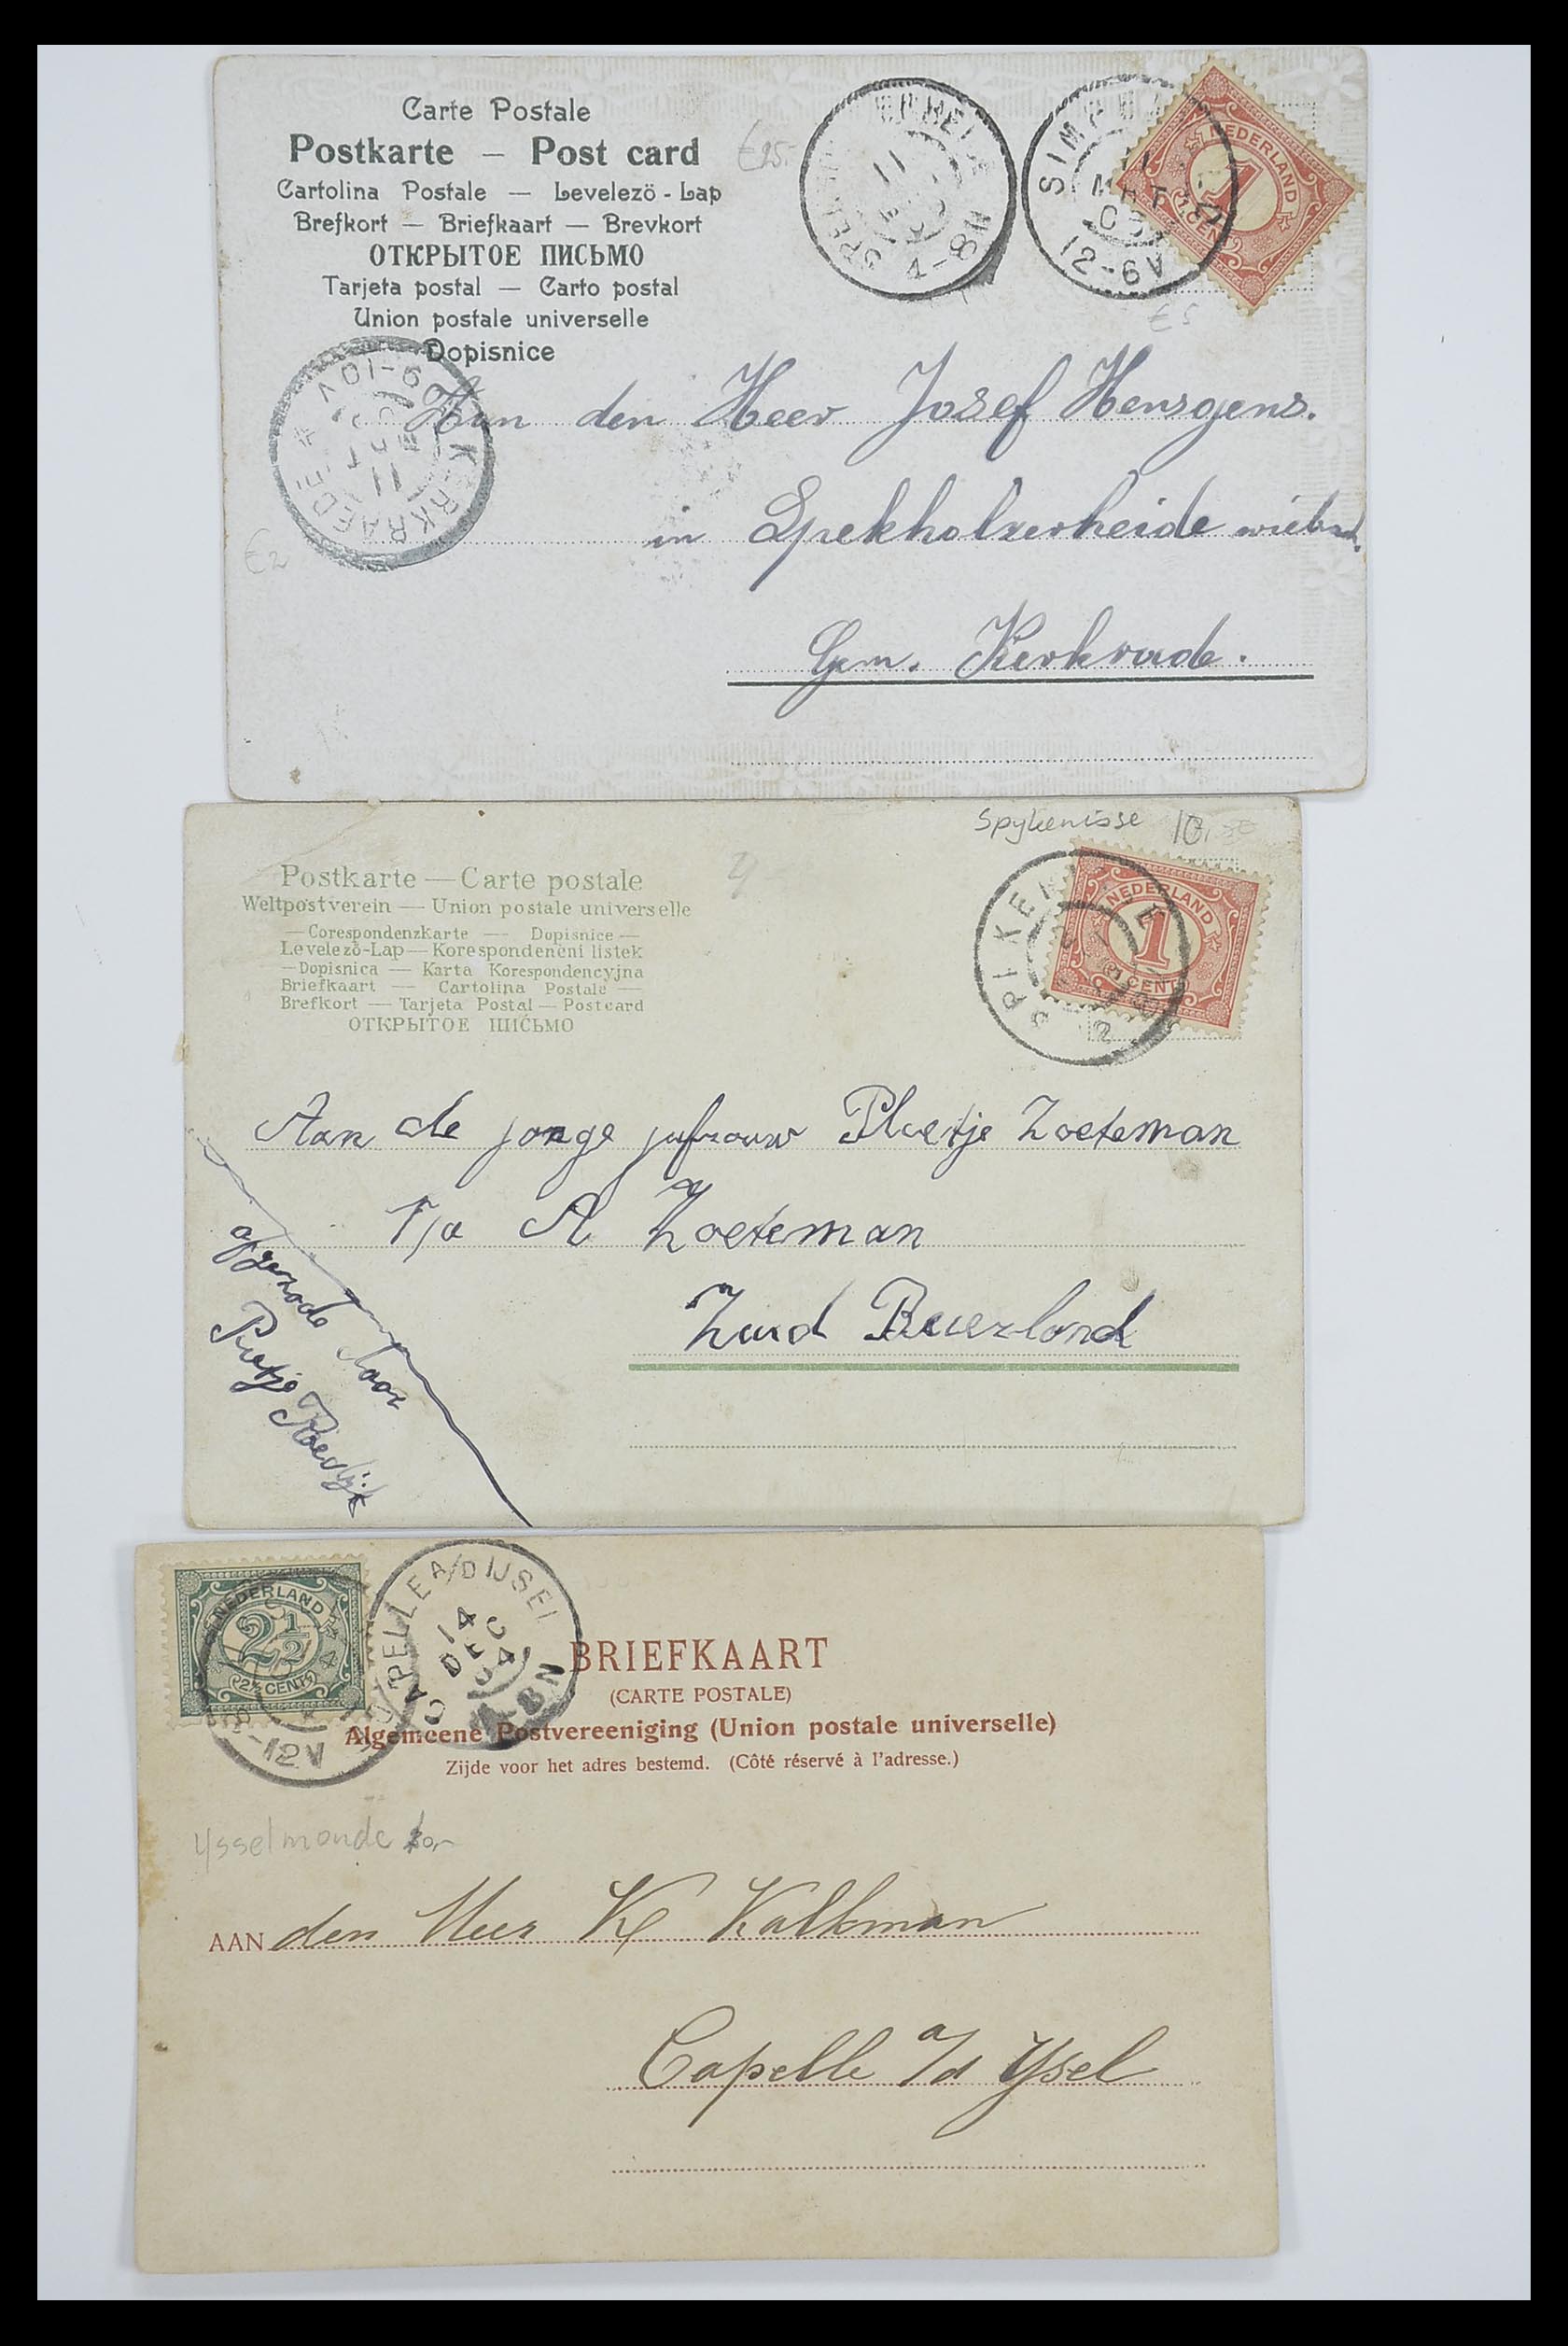 Carte Postale
Postkarte — Post card
Cartolina Postale — Levelező - Lap
Brefkort — Briefkaart — Brevkort
ОТКРЫТОЕ ПИСЬМО
Tarjeta postal — Carto postal
Union postale universelle
Dopisnice
€25.-
4-8N
SIMP
11
MRT
05
12-6V
NEDERLAND
1
1 CENT
€5
9-10V
KERKRAEDE
11
€2
Aan den Heer Josef Hensgens.
in Spekholzerheide
Gem. Kerkrade.
Spykenisse 10,-
Postkarte — Carte postale
Weltpostverein — Union postale universelle
— Corespondenzkarte — Dopisnice —
Levelező-Lap — Korespondenční listek
— Dopisnica — Karta Korespondencyjna
Briefkaart — Cartolina Postale —
Brefkort — Tarjeta Postal — Postcard
ОТКРЫТОЕ ПИСЬМО
SPIKEN
NEDERLAND
1
CENT
Aan de jonge jufrouw Pleetje Zoeteman
P/a A Zoeteman
Zuid Beierland
afzende voor
Pietje
NEDERLAND
2½
2½ CENT
8-12V
CAPELLE A/D IJSEL
14
DEC
04
-8N
BRIEFKAART
(CARTE POSTALE)
Algemeene Postvereeniging (Union postale universelle)
Zijde voor het adres bestemd. (Côté réservé à l'adresse.)
Ysselmonde
AAN den Heer K Kalkman
Capelle a/d Ysel